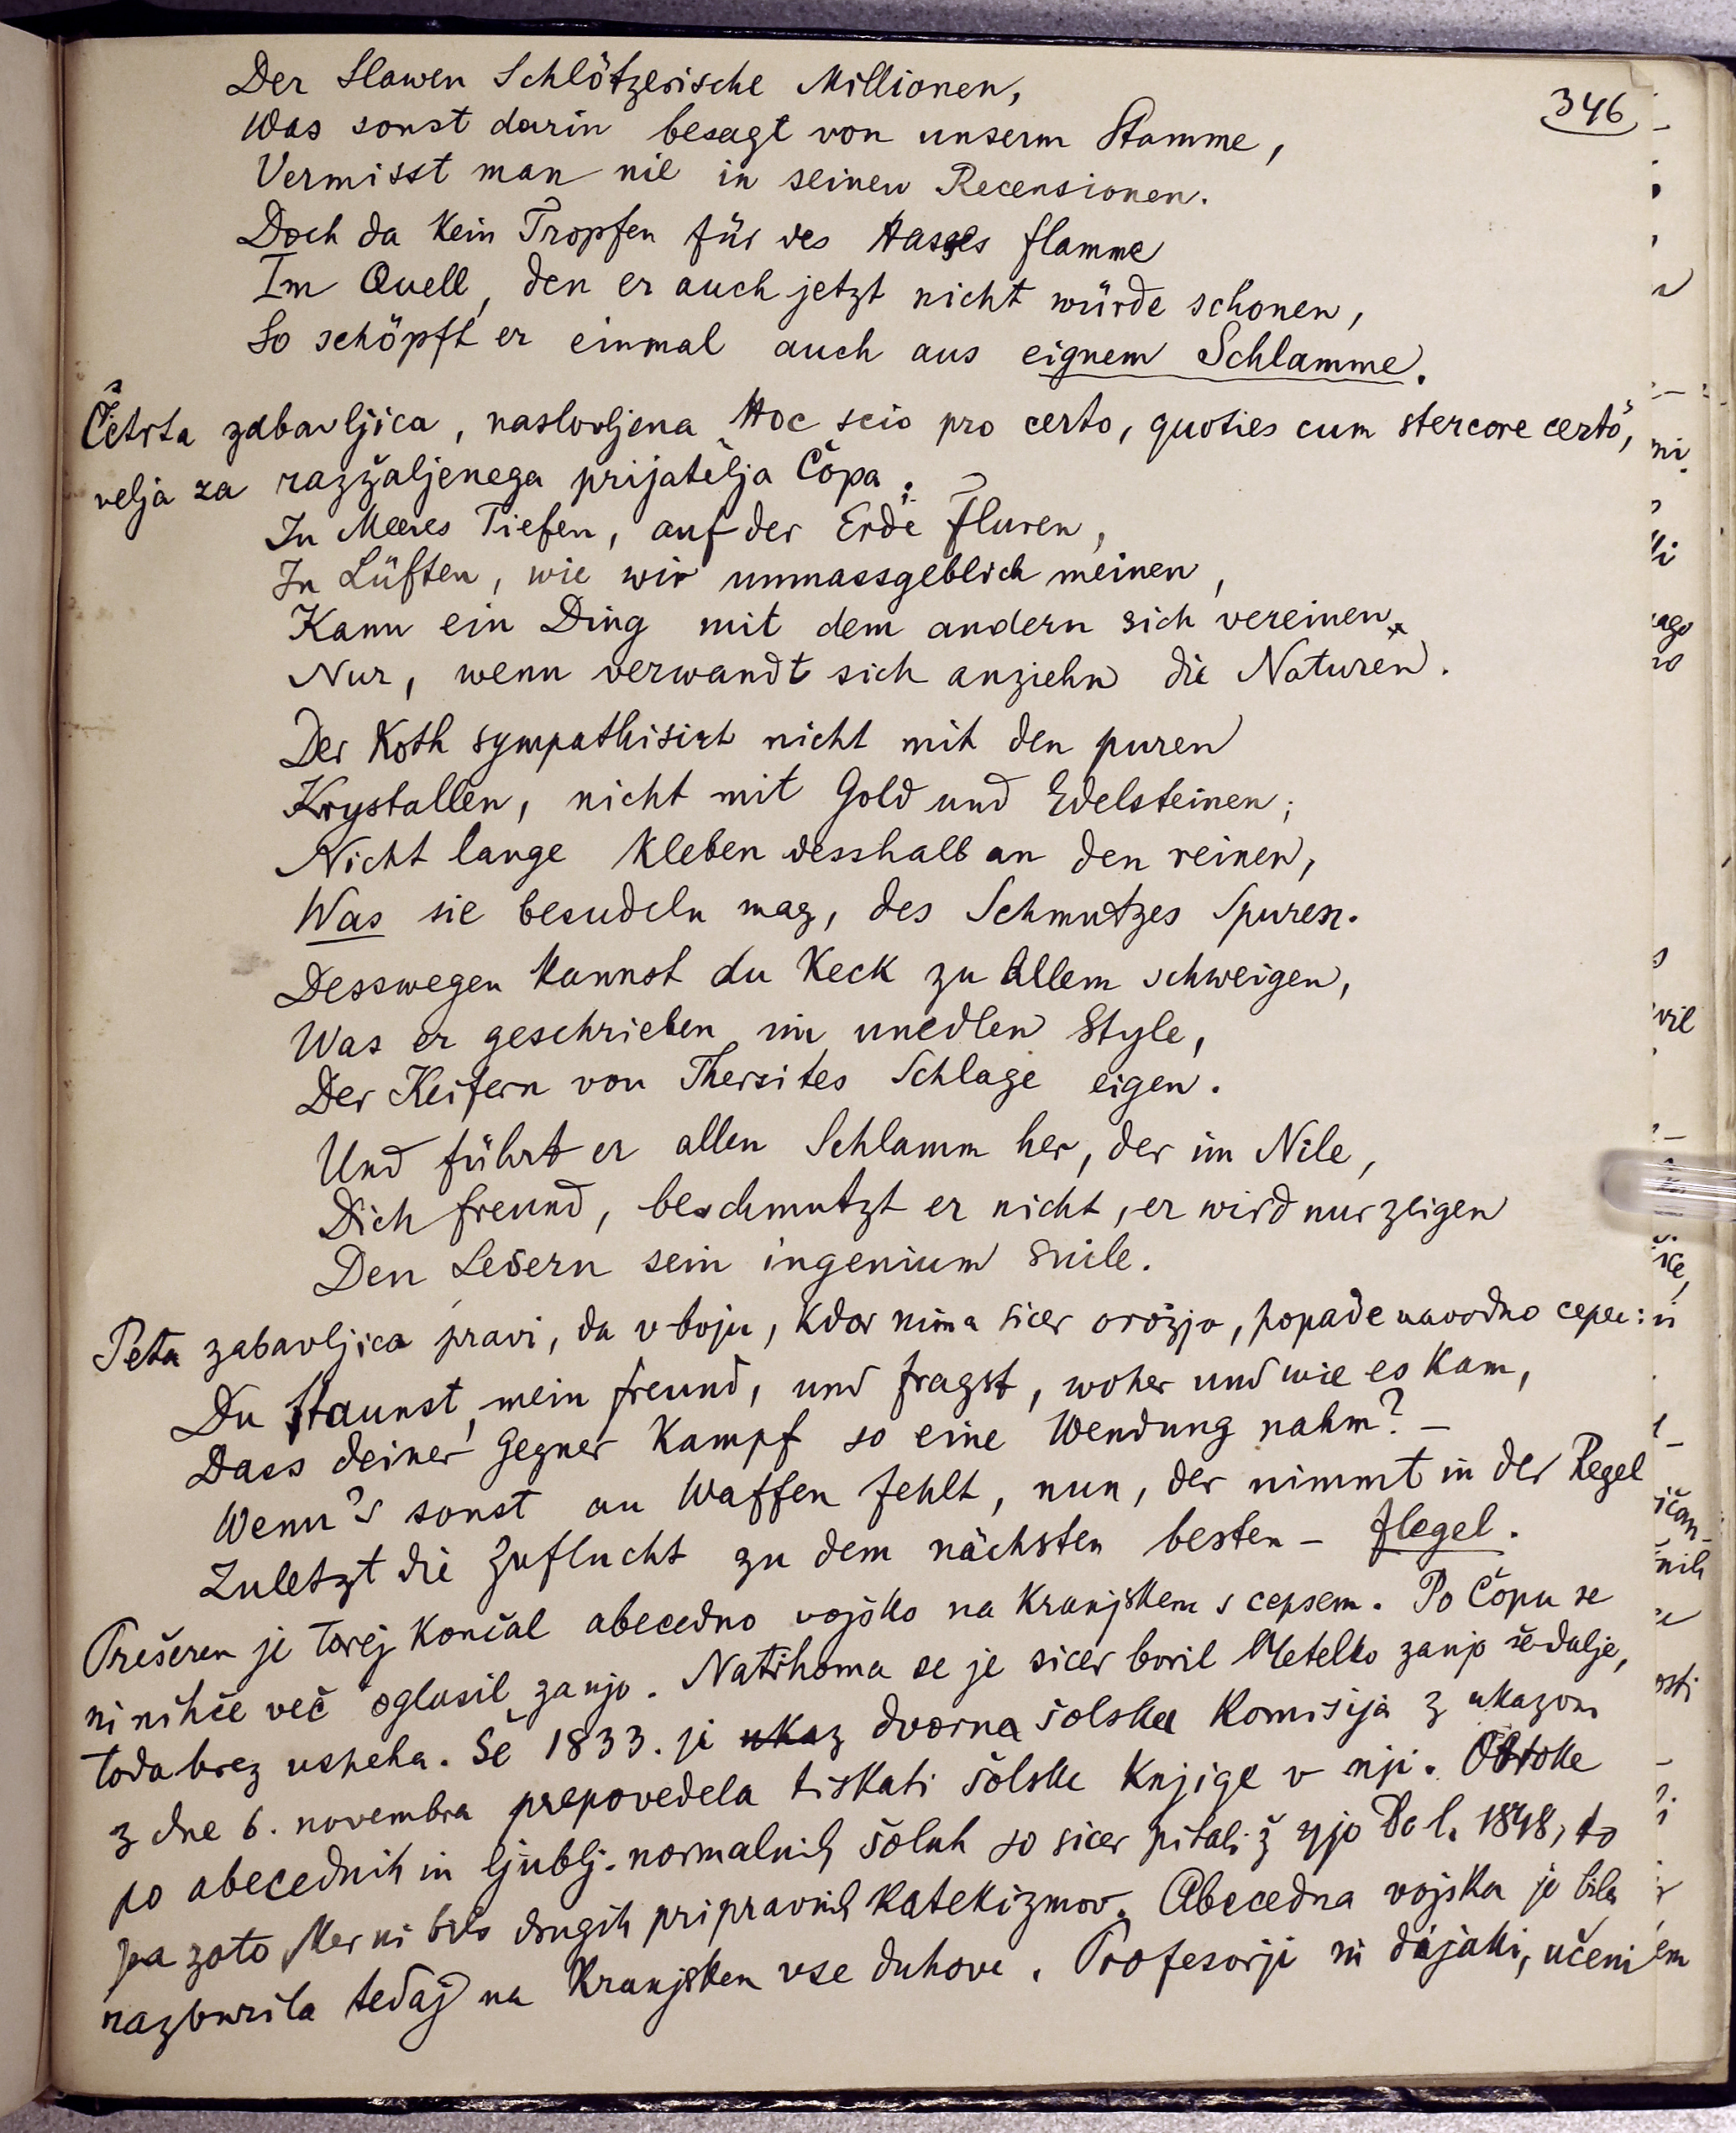 346
Der Slawen Schlötzerische Millionen,
Was sonst darin besagt von unserm Stamme,
Vermisst man nie in seinen Recensionen.
Doch da kein Tropfen für des Hasses flamme
Im Quell, den er auch jetzt nicht würde schonen,
So schöpft er einmal auch aus eignem Schlamme.
Četrta zabavljica, naslovljena „Hoc scio pro certo, quoties cum stercore certo“,
velja za razžaljenega prijatelja Čopa:
In Meeres Tiefen, auf der Erde Fluren,
In Lüften, wie wir unmassgeblich meinen,
Kann ein Ding mit dem andern sich vereinen
Nur, wenn verwandt sich anziehn die Naturen.
Der Koth sympathisirt nicht mit den puren
Krystallen, nicht mit Gold und Edelsteinen;
Nicht lange kleben desshalb an den reinen,
Was sie besudeln mag, des Schmutzes Spuren.
Desswegen kannst du keck zu allem schweigen,
Was er geschrieben im unedlen Style,
Der Keifern von Thersites Schlage eigen.
Und führt er allen Schlamm her, der im Nile,
Dich freund, beschmutzt er nicht, er wird nur zeigen
Den Lesern sein ingenium suile.
Peta zabavljica pravi, da v boju, kdor nima sicer orožja, popade navadno cepec:
Du staunst, mein freund, und fragst, woher und wie es kam,
Dass deiner Gegner Kampf so eine Wendung nahm? –
Wenn's sonst an Waffen fehlt, nun, der nimmt in der Regel
Zuletzt die Zuflucht zu dem nächsten besten – flegel.
Prešeren je torej končal abecedno vojsko na Kranjskem s cepsem. Po Čopu se
ni nihče več oglasil zanjo. Natihoma se je sicer boril Metelko zanjo še dalje,
toda brez uspeha. Še 1833. je ukaz dvorna šolska komisija z ukazom
z dne 6. novembra prepovedela tiskati šolske knjige v nji. Otroke
po abecednih in ljublj. normalnih šolah so sicer pitali ž njo do l. 1848, to
pa zato ker ni bilo drugih pripravnih katekizmov. Abecedna vojska je bila
razburila tedaj na Kranjskem vse duhove. Profesorji in dijaki, učeni